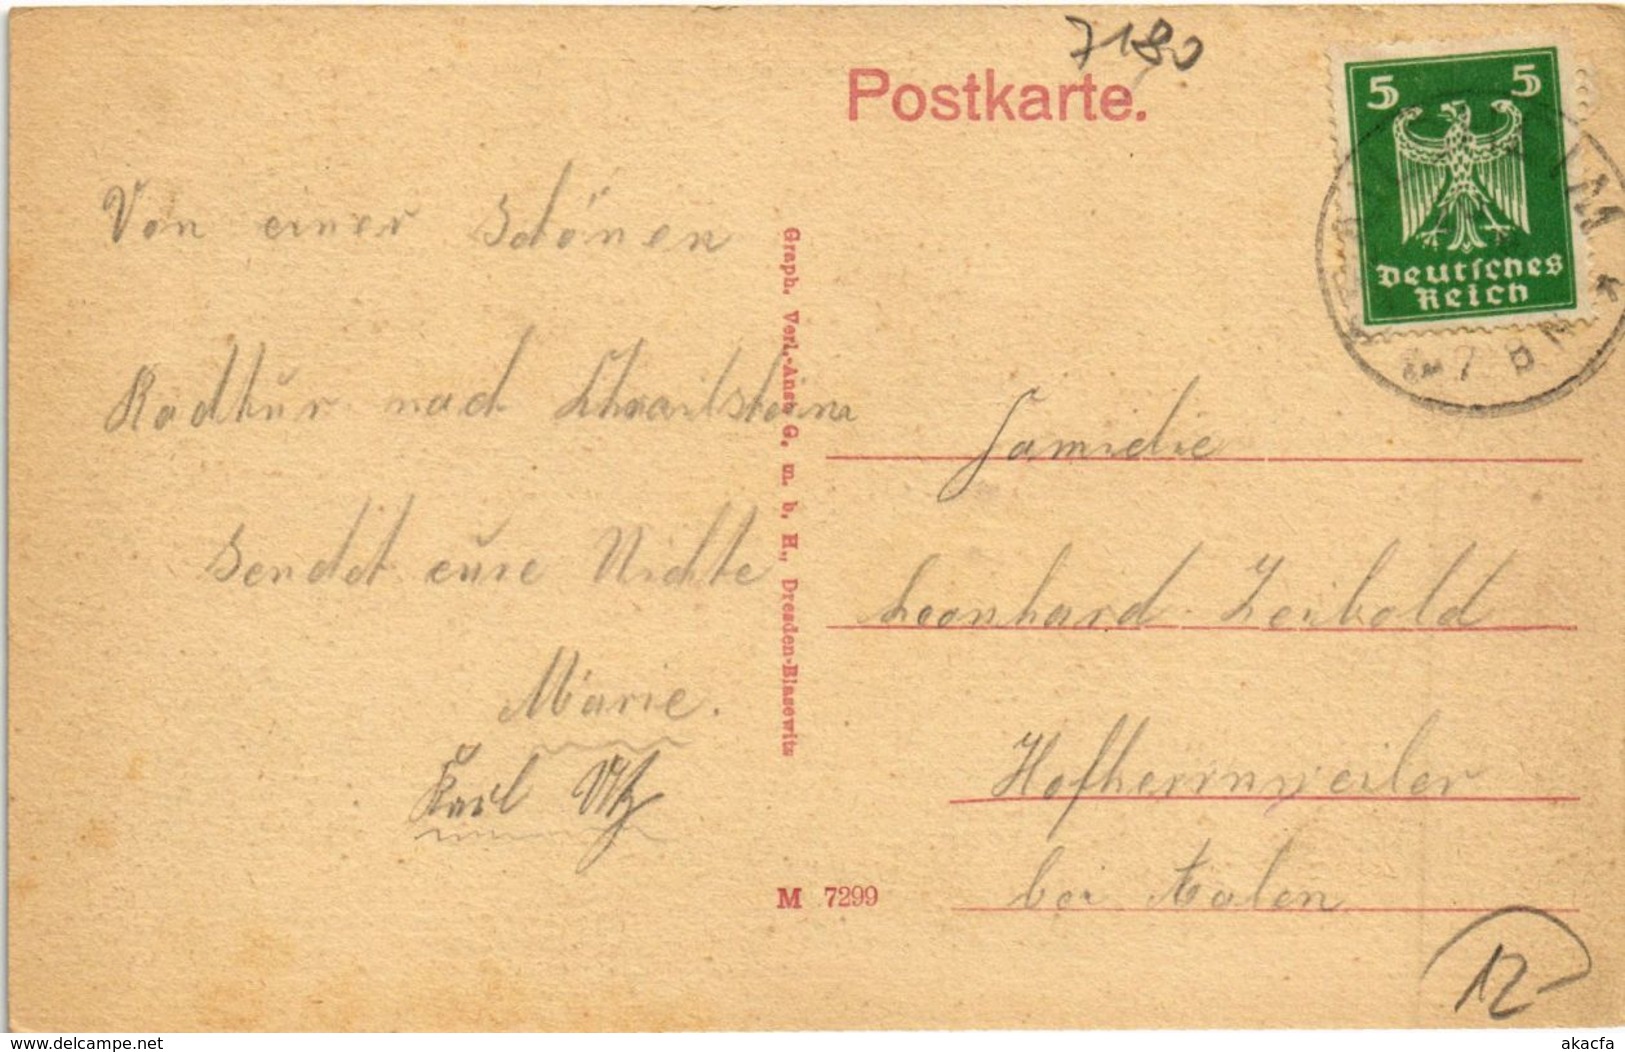 7180
Postkarte.
5 5
Deutsches
Reich
Von einer schönen
Radtur nach
sendet eure Nichte
Marie.
Karl Utz
Graph. Verl.-Anst. G. m. b. H., Dresden-Blasewitz
Familie
Leonhard Zeibold
Hofherrnweiler
bei Aalen
M 7299
12
www.delcampe.net
akacfa